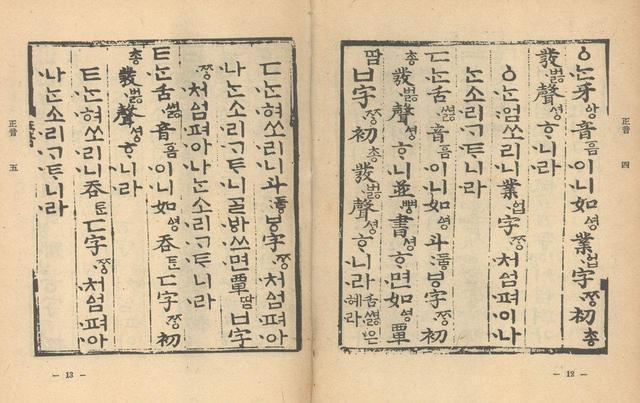 正音 四
ㆁᄂᆞᆫ牙ᅌᅡᆼ音ᅙᅳᆷ이니如ᅀᅧᆼ業ᅌᅥᆸ字ᄍᆞᆼ初총
發벓聲셩ᄒᆞ니라
ㆁᄂᆞᆫ엄쏘리니業ᅌᅥᆸ字ᄍᆞᆼ처ᅀᅥᆷ펴아나
ᄂᆞᆫ소리ᄀᆞᄐᆞ니라
ㄷᄂᆞᆫ舌쎯音ᅙᅳᆷ이니如ᅀᅧᆼ斗두ᇢㅸ字ᄍᆞᆼ初
총發벓聲셩ᄒᆞ니並뼝書셩ᄒᆞ면如ᅀᅧᆼ覃
땀ㅂ字ᄍᆞᆼ初총發벓聲셩ᄒᆞ니라舌쎯은혀라
— 12 —
ㄷᄂᆞᆫ혀쏘리니斗두ᇢㅸ字ᄍᆞᆼ처ᅀᅥᆷ펴아
나ᄂᆞᆫ소리ᄀᆞᄐᆞ니ᄀᆞᆯᄫᅡ쓰면覃땀ㅂ字
ᄍᆞᆼ처ᅀᅥᆷ펴아나ᄂᆞᆫ소리ᄀᆞᄐᆞ니라
ㅌᄂᆞᆫ舌쎯音ᅙᅳᆷ이니如ᅀᅧᆼ呑ᄐᆞᆫㄷ字ᄍᆞᆼ初
총發벓聲셩ᄒᆞ니라
ㅌᄂᆞᆫ혀쏘리니呑ᄐᆞᆫㄷ字ᄍᆞᆼ처ᅀᅥᆷ펴아
나ᄂᆞᆫ소리ᄀᆞᄐᆞ니라
正音 五
— 13 —